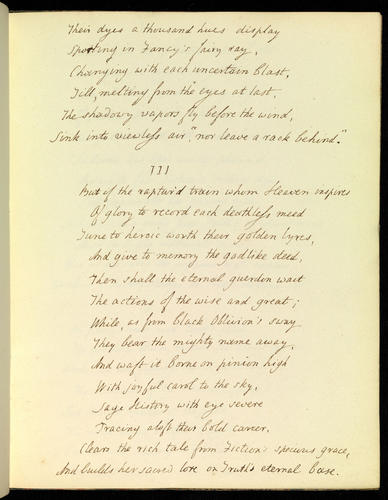 Their dyes a thousand hues display
Sporting in Fancy's fairy ray,
Changing with each uncertain blast,
Till, melting from the eyes at last,
The shadowy vapors fly before the wind,
Sink into viewless air, "nor leave a rack behind".
III
But if the raptur'd train whom Heaven inspires
Of glory to record each deathless meed
Tune to heroic worth their golden lyres,
And give to memory the godlike deed,
Then shall the eternal guerdon wait
The actions of the wise and great;
While, as from black Oblivion's sway
They bear the mighty name away,
And waft it borne on pinion high
With joyful carol to the sky,
Sage History with eye severe
Tracing aloft their bold career,
Clears the rich tale from Fiction's specious grace,
And builds her sacred lore on Truth's eternal base.